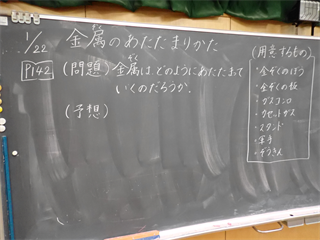 1/22
金属のあたたまりかた
P142
(問題)金属は、どのようにあたたまって
いくのだろうか。
(予想)
(用意するもの)
・金ぞくのぼう
・金ぞくの板
・ガスコンロ
・カセットガス
・スタンド
・軍手
・ぞうきん